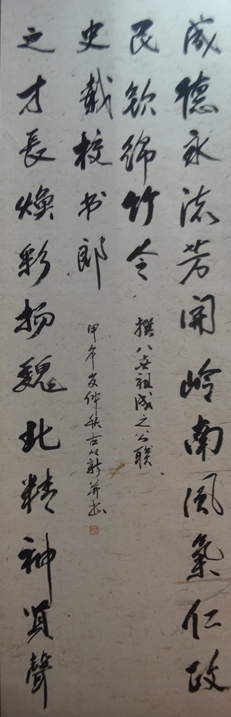 盛德永流芳開嶺南風氣仁政
民欽綿竹令
撰八世祖成之公聯
之才長煥彩揚魏北精神賢聲
史載校书郎
甲午岁仲秋古新并书